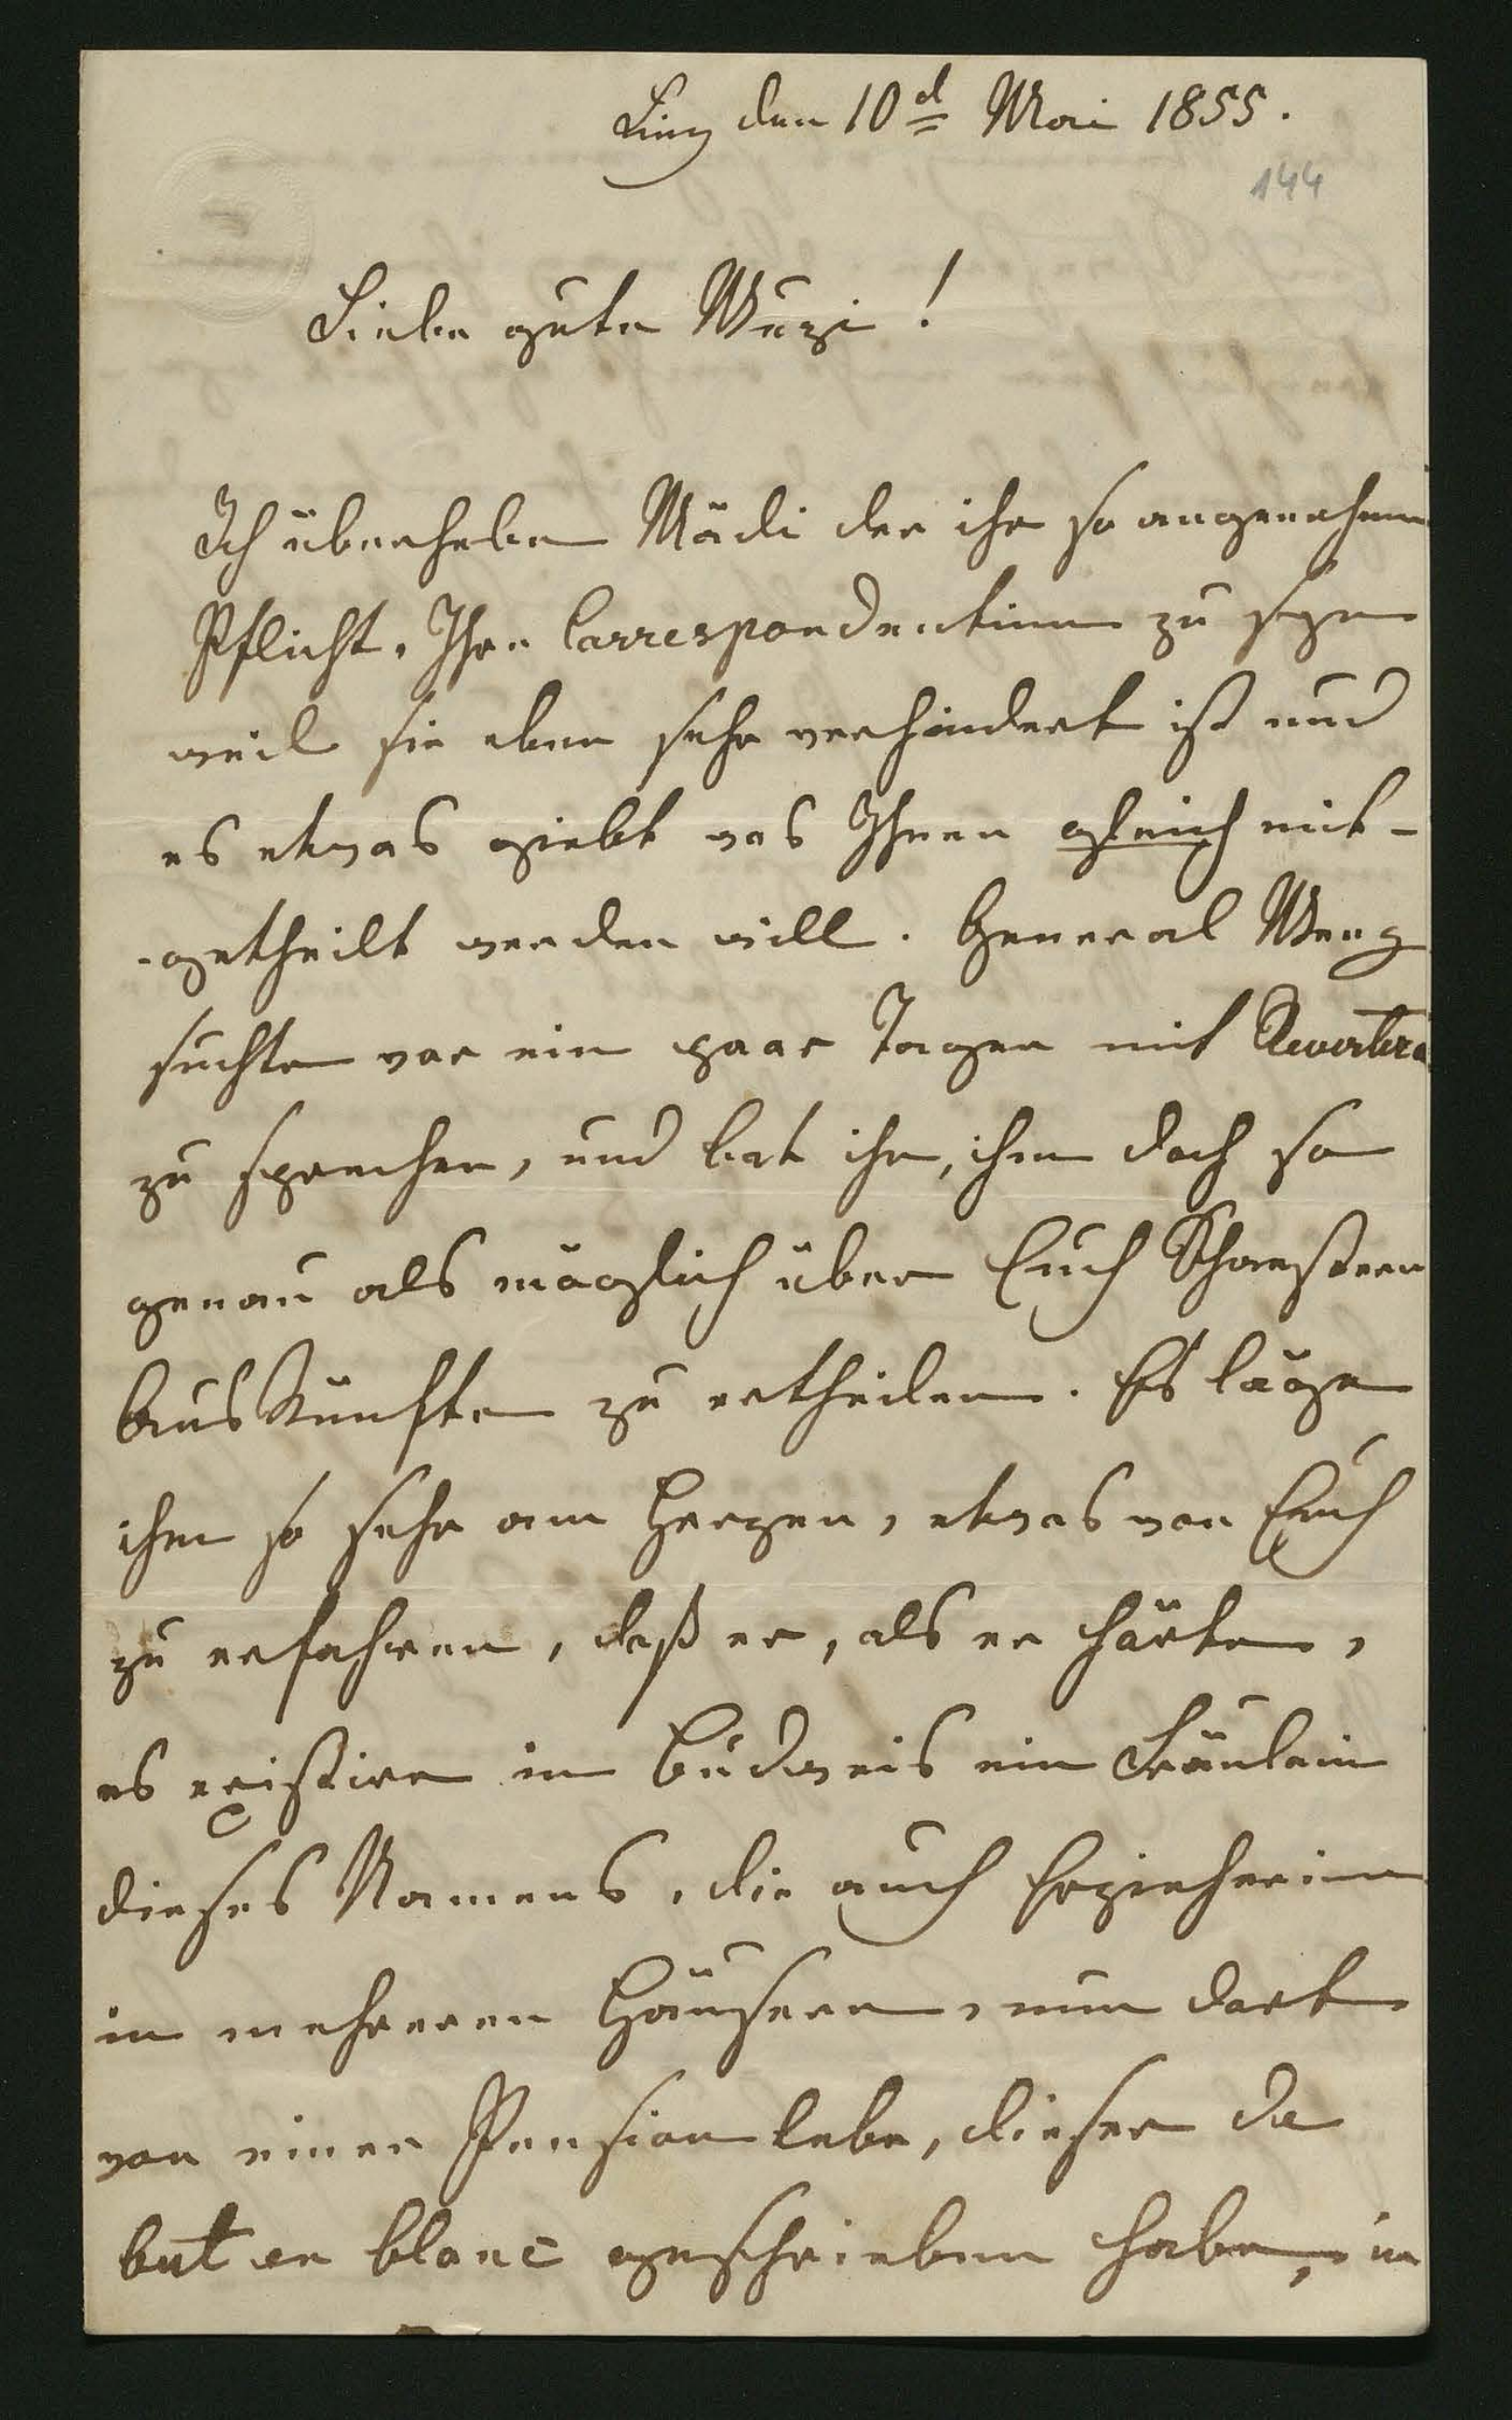 Linz den 10d Mai 1855.
144
Liebe gute Muzi!
Ich überhebe Mädi der ihr so angenehmen
Pflicht, Ihre Correspondentinn zu seyn
weil sie eben sehr verhindert ist und
es etwas giebt was Ihnen gleich mit-
-getheilt werden will. General Weng
suchte vor ein paar Tagen mit Revertera
zu sprechen, und bat ihn, ihm doch so
genau als möglich über Euch Schwestern
Auskünfte zu ertheilen. Es läge
ihm so sehr am Herzen, etwas von Euch
zu erfahren, daß er, als er hörte,
es existire in Budweis ein Fräulein
dieses Namens, die auch Erzieherinn
in mehreren Häusern, nun dort
von einer Pension lebe, dieser de
but en blanc geschrieben habe, in